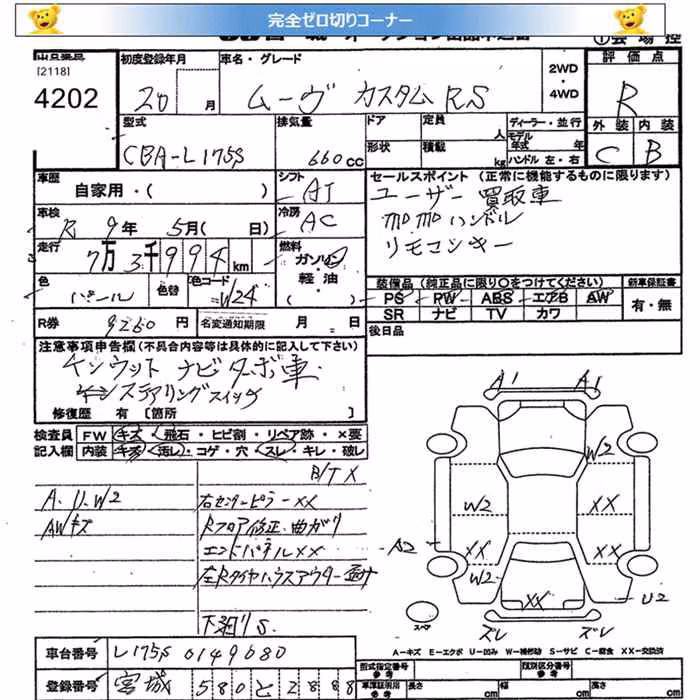 完全ゼロ切りコーナー
[2118]
4202
初度登録年月
20 月
車名・グレード
ムーヴ カスタムRS
2WD
・
4WD
評価点
R
外装 内装
C B
型式
CBA-L175S
排気量
660cc
ドア
形状
定員 人
積載 kg
ディーラー・並行
モデル年式 年
ハンドル 左・右
車歴
自家用・( )
シフト
AT
車検
R 9年 5月( 日)
冷房
AC
走行
7万3千994km
燃料
ガソリン
・
軽油
( )
色
パール
色替
色コード
W24
R券
9260円
名変通知期限 月 日
セールスポイント (正常に機能するものに限ります)
ユーザー買取車
MOMOハンドル
リモコンキー
装備品 (純正品に限り○をつけてください)
PS PW ABS エアB AW
SR ナビ TV カワ
新車保証書
有・無
後日品
注意事項申告欄 (不具合内容等は具体的に記入して下さい)
ケンウッド ナビ ターボ車
ステアリングスイッチ
修復歴 有 〔箇所 〕
検査員 FW キズ・飛石・ヒビ割・リペア跡・×要
記入欄 内装 キズ・汚レ・コゲ・穴・スレ・キレ・破レ
B/TX
A.U.W2
AWキズ
右センターピラーXX
Rフロア修正・曲ガリ
エンドパネルXX
左Rタイヤハウスアウター
下廻りS
A1 A1
W2
W2 XX
A2
XX XX
W2
U2
XX
スペア
ズレ ズレ
A−キズ E−エクボ U−凹み W−補修跡 S−サビ C−腐食 XX−交換済
車台番号 L175S 0149680
登録番号 宮城 580 と 2888
型式指定番号
参考
類別区分番号
参考
車庫証明用
参考
長さ cm
幅 cm
高さ cm